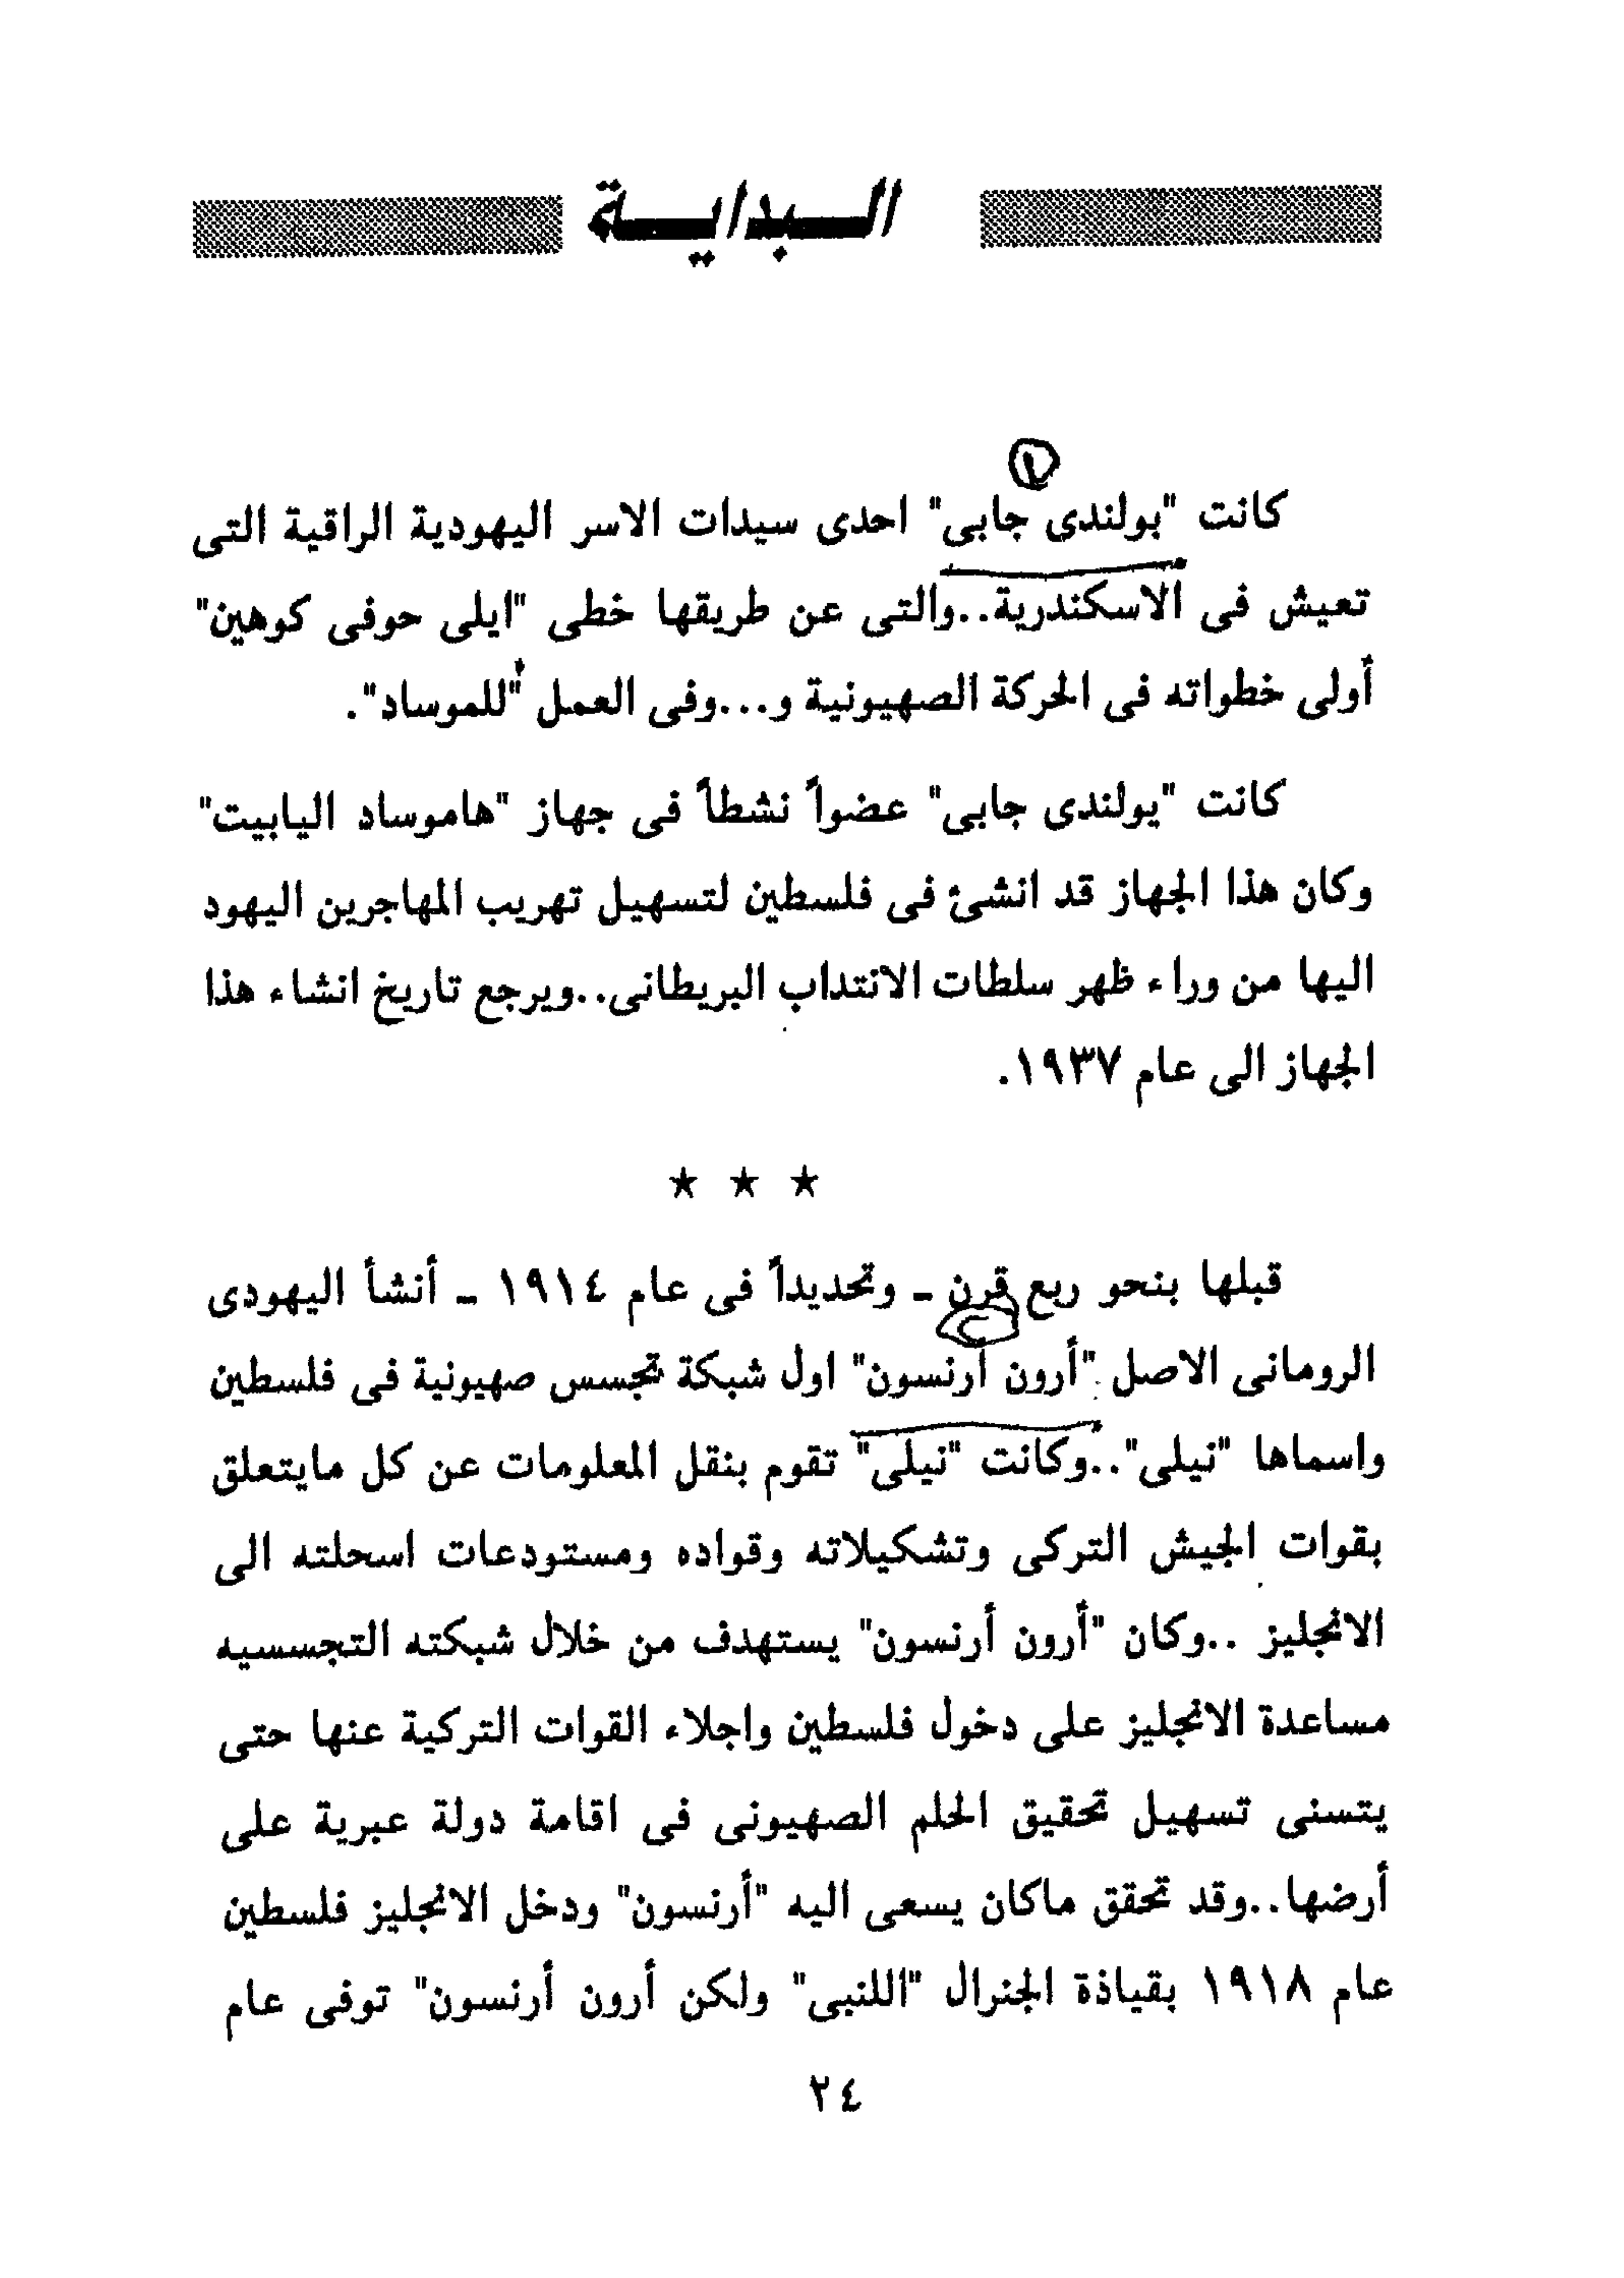 البداية
١
كانت "بولندى جابى" احدى سيدات الاسر اليهودية الراقية التى
تعيش فى الاسكندرية..والتى عن طريقها خطى "ايلى حوفى كوهين"
أولى خطواته فى الحركة الصهيونية و...وفى العمل "للموساد".
كانت "يولندى جابى" عضواً نشطاً فى جهاز "هاموساد اليابيت"
وكان هذا الجهاز قد انشئ فى فلسطين لتسهيل تهريب المهاجرين اليهود
اليها من وراء ظهر سلطات الانتداب البريطانى..ويرجع تاريخ انشاء هذا
الجهاز الى عام ١٩٣٧.
★ ★ ★
قبلها بنحو ربع قرن ـ وتحديداً فى عام ١٩١٤ ـ أنشأ اليهودى
الرومانى الاصل "أرون أرنسون" اول شبكة تجسس صهيونية فى فلسطين
واسماها "نيلى"..وكانت "نيلى" تقوم بنقل المعلومات عن كل مايتعلق
بقوات الجيش التركى وتشكيلاته وقواده ومستودعات اسحلته الى
الانجليز ..وكان "أرون أرنسون" يستهدف من خلال شبكته التجسسيه
مساعدة الانجليز على دخول فلسطين واجلاء القوات التركية عنها حتى
يتسنى تسهيل تحقيق الحلم الصهيونى فى اقامة دولة عبرية على
أرضها..وقد تحقق ماكان يسعى اليه "أرنسون" ودخل الانجليز فلسطين
عام ١٩١٨ بقياذة الجنرال "اللنبى" ولكن أرون أرنسون" توفى عام
٢٤